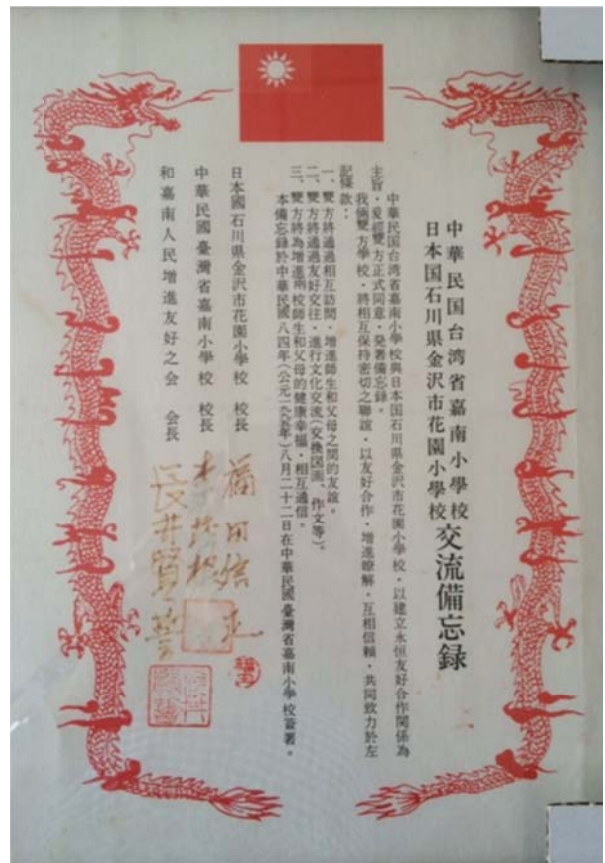 中華民国台湾省嘉南小學校
日本国石川県金沢市花園小學校
交流備忘録
中華民国台湾省嘉南小學校與日本国石川県金沢市花園小學校，以建立永恒友好合作関係為
主旨，爰經雙方正式同意，発署備忘録。
我倆雙方學校，將相互保持密切之聯誼，以友好合作，增進瞭解，互相信賴，共同致力於左
記條款：
一、雙方將通過相互訪問，增進師生和父母之間的友誼。
二、雙方將通過友好交往，進行文化交流(交換図画、作文等)。
三、雙方將為增進兩校師生和父母的健康幸福，相互通信。
本備忘録於中華民國八四年(公元一九九五年)八月二十二日在中華民國臺灣省嘉南小學校簽署。
日本國石川県金沢市花園小學校 校長
中華民國臺灣省嘉南小學校 校長
和嘉南人民增進友好之会 会長
長井賢誓